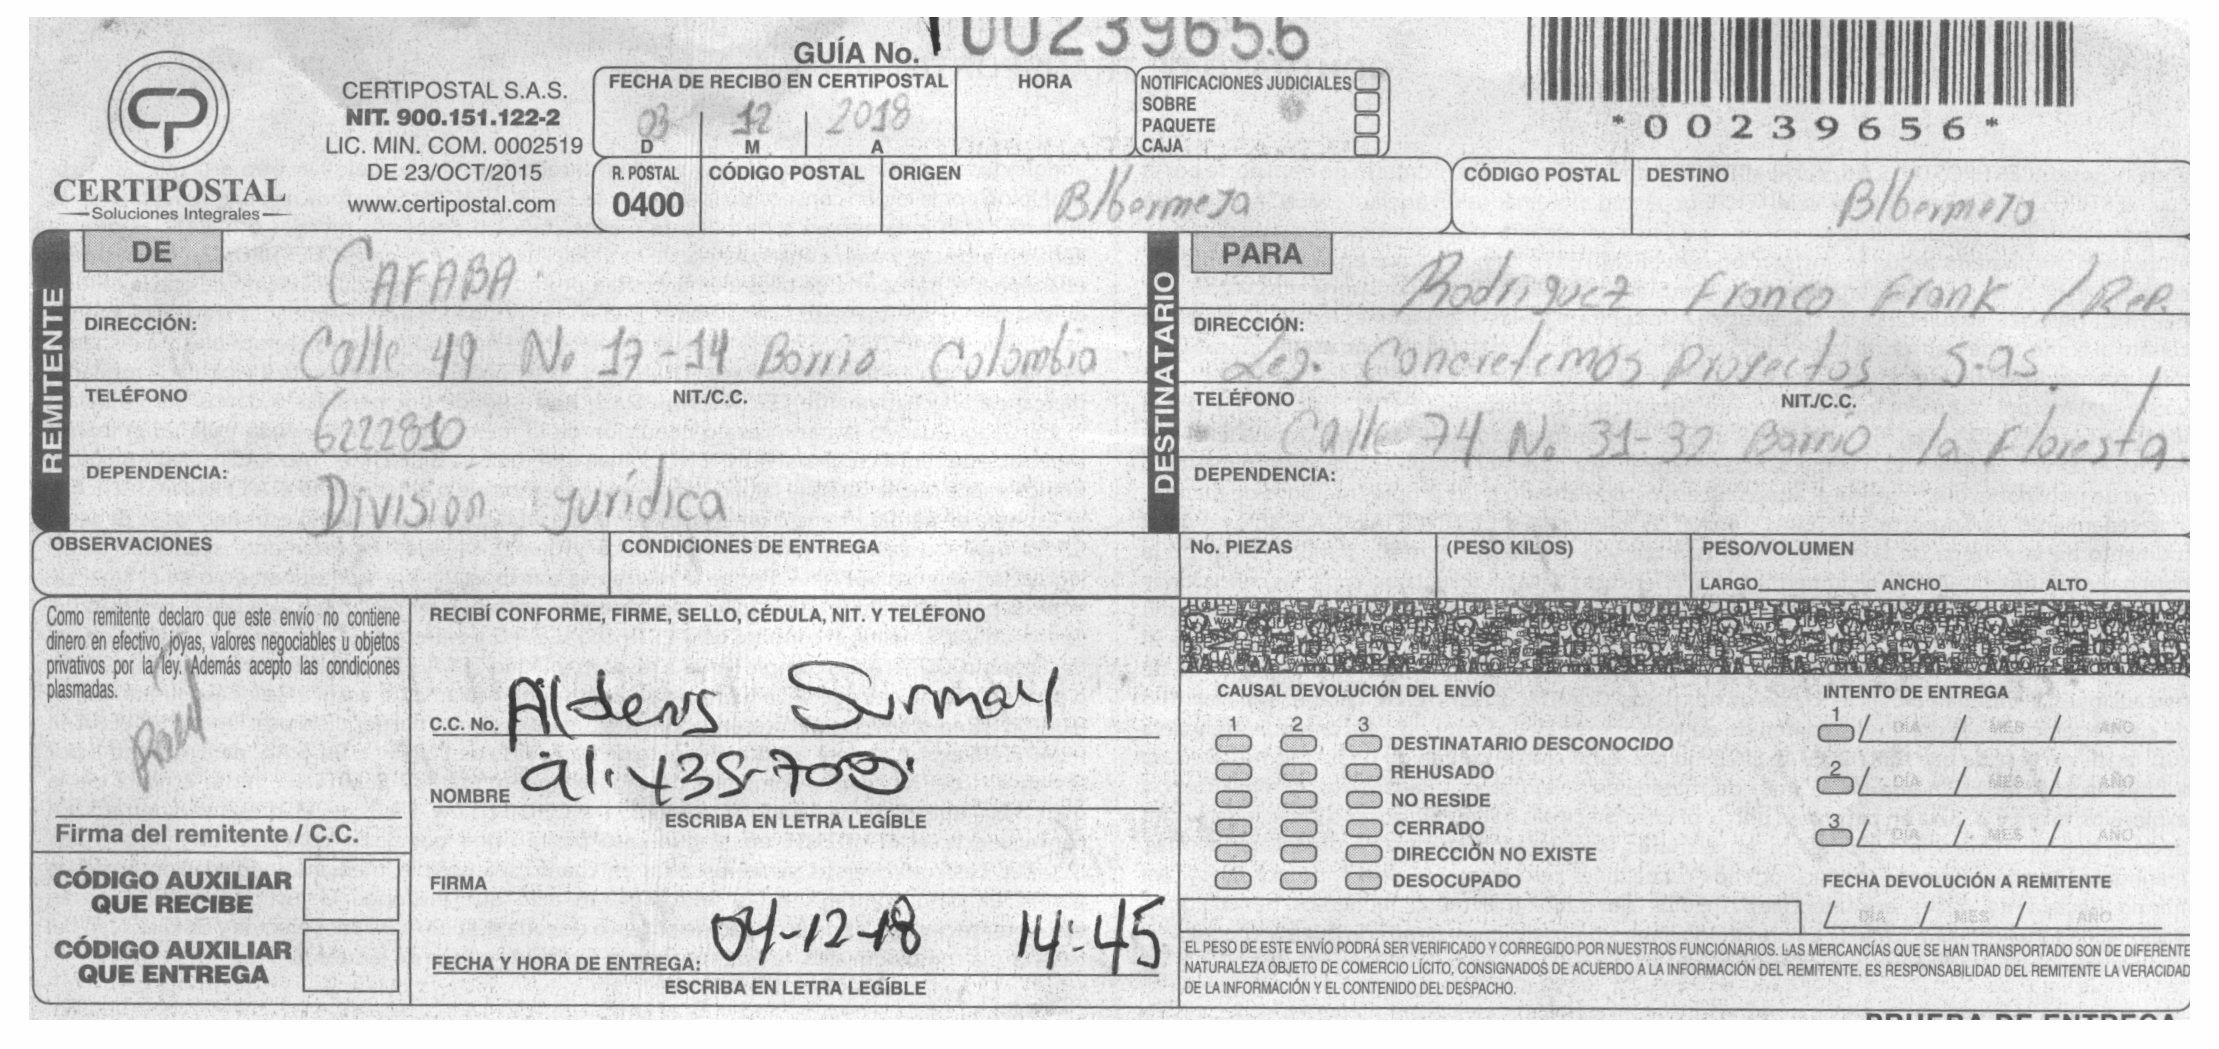 GUÍA No. 00239656
*00239656*
CERTIPOSTAL
Soluciones Integrales
CERTIPOSTAL S.A.S.
NIT. 900.151.122-2
LIC. MIN. COM. 0002519
DE 23/OCT/2015
www.certipostal.com
FECHA DE RECIBO EN CERTIPOSTAL
03 12 2018
D M A
HORA
NOTIFICACIONES JUDICIALES
SOBRE
PAQUETE
CAJA
R. POSTAL
0400
CÓDIGO POSTAL
ORIGEN
B/bermeja
CÓDIGO POSTAL
DESTINO
B/bermeja
REMITENTE
DE
CAFABA
DIRECCIÓN:
Calle 49 No 17-14 Barrio Colombia
TELÉFONO
NIT./C.C.
6222810
DEPENDENCIA:
Division juridica
DESTINATARIO
PARA
Rodriguez Franco Frank / Rep.
DIRECCIÓN:
Leg. Concretemos Proyectos S.as.
TELÉFONO
NIT./C.C.
Calle 74 No 31-32 Barrio la Floresta
DEPENDENCIA:
OBSERVACIONES
CONDICIONES DE ENTREGA
No. PIEZAS
(PESO KILOS)
PESO/VOLUMEN
LARGO ANCHO ALTO
Como remitente declaro que este envío no contiene
dinero en efectivo, joyas, valores negociables u objetos
privativos por la ley. Además acepto las condiciones
plasmadas.
Firma del remitente / C.C.
CÓDIGO AUXILIAR
QUE RECIBE
CÓDIGO AUXILIAR
QUE ENTREGA
RECIBÍ CONFORME, FIRME, SELLO, CÉDULA, NIT. Y TELÉFONO
C.C. No.
NOMBRE 91.435-700
ESCRIBA EN LETRA LEGÍBLE
FIRMA
04-12-18 14:45
FECHA Y HORA DE ENTREGA:
ESCRIBA EN LETRA LEGÍBLE
CAUSAL DEVOLUCIÓN DEL ENVÍO
1 2 3
DESTINATARIO DESCONOCIDO
REHUSADO
NO RESIDE
CERRADO
DIRECCIÓN NO EXISTE
DESOCUPADO
INTENTO DE ENTREGA
1 / DÍA / MES / AÑO
2 / DÍA / MES / AÑO
3 / DÍA / MES / AÑO
FECHA DEVOLUCIÓN A REMITENTE
/ DÍA / MES / AÑO
EL PESO DE ESTE ENVÍO PODRÁ SER VERIFICADO Y CORREGIDO POR NUESTROS FUNCIONARIOS. LAS MERCANCÍAS QUE SE HAN TRANSPORTADO SON DE DIFERENTE
NATURALEZA OBJETO DE COMERCIO LÍCITO, CONSIGNADOS DE ACUERDO A LA INFORMACIÓN DEL REMITENTE. ES RESPONSABILIDAD DEL REMITENTE LA VERACIDAD
DE LA INFORMACIÓN Y EL CONTENIDO DEL DESPACHO.
PRUEBA DE ENTREGA